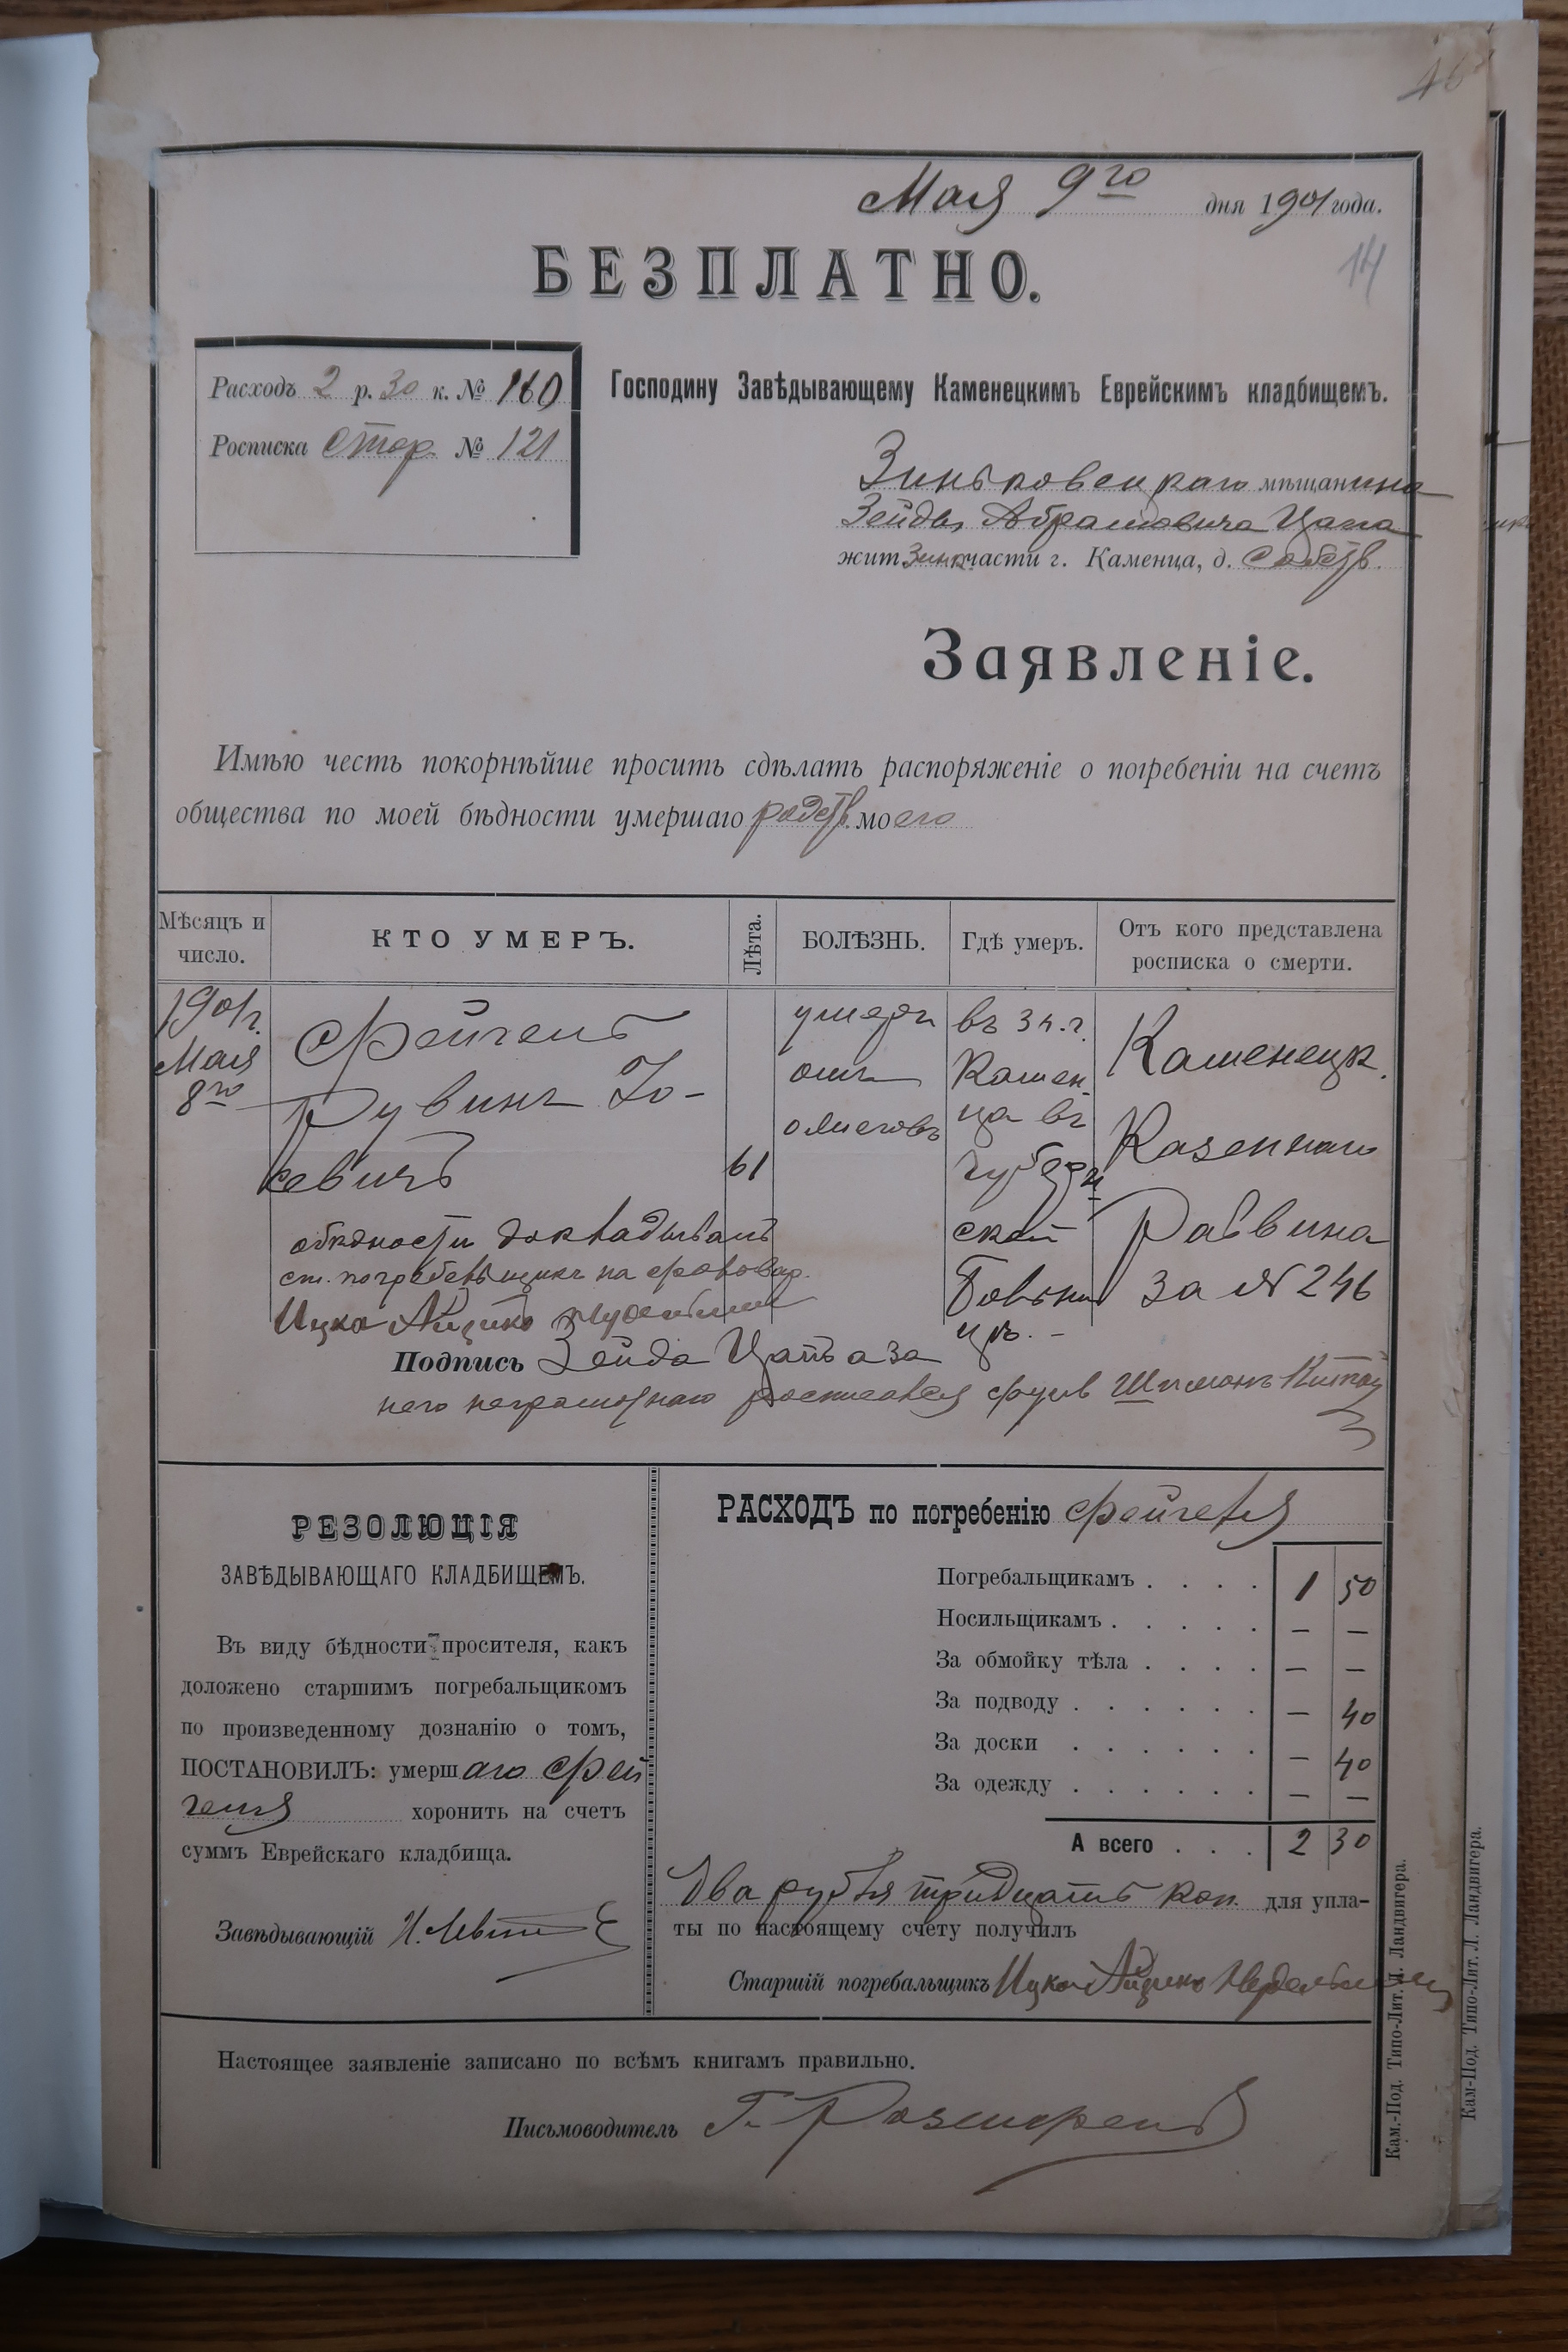 Мая 9го дня 1901 года.
14
БЕЗПЛАТНО.
Расходъ 2 р. 30 к. № 160
Росписка стор. № 121
Господину Завѣдывающему Каменецкимъ Еврейскимъ кладбищемъ.
Зиньковецкаго мѣщанина
Зейды Абрамовича Цапа
жит Зинк. части г. Каменца, д. собств.
Заявленіе.
Имѣю честь покорнѣйше просить сдѣлать распоряженіе о погребеніи на счетъ
общества по моей бѣдности умершаго родств. моего
Мѣсяцъ и число.
КТО УМЕРЪ.
Лѣта.
БОЛѢЗНЬ.
Гдѣ умеръ.
Отъ кого представлена росписка о смерти.
1901г.
Мая
8го
Фейгель
Рувинъ Іо-
севичъ
61
умеръ
отъ
ожоговъ
въ
Камен
ца въ
губерн
ской
больни
цѣ. -
Каменецк.
Казеннаго
Раввина
за № 246
обѣдности докладывалъ
ст. погребальщикъ
Ицко Айзикъ
Подпись Зейда Цапъ а за
него неграмотнаго росписался Шимонъ
РЕЗОЛЮЦІЯ
ЗАВѢДЫВАЮЩАГО КЛАДБИЩЕМЪ.
Въ виду бѣдности просителя, какъ
доложено старшимъ погребальщикомъ
по произведенному дознанію о томъ,
ПОСТАНОВИЛЪ: умершаго Фей
геля хоронить на счетъ
суммъ Еврейскаго кладбища.
Завѣдывающій
РАСХОДЪ по погребенію Фейгеля
Погребальщикамъ . . . . 1 50
Носильщикамъ . . . . . — —
За обмойку тѣла . . . . — —
За подводу . . . . . . — 40
За доски . . . . . . — 40
За одежду . . . . . . — —
А всего . . . 2 30
Два рубля тридцать коп. для упла-
ты по настоящему счету получилъ
Старшій погребальщикъ Ицко Айзикъ
Настоящее заявленіе записано по всѣмъ книгамъ правильно.
Письмоводитель Г.
Кам.-Под. Типо-Лит. Л. Ландвигера.
Кам-Под. Типо-Лит. Л. Ландвигера.